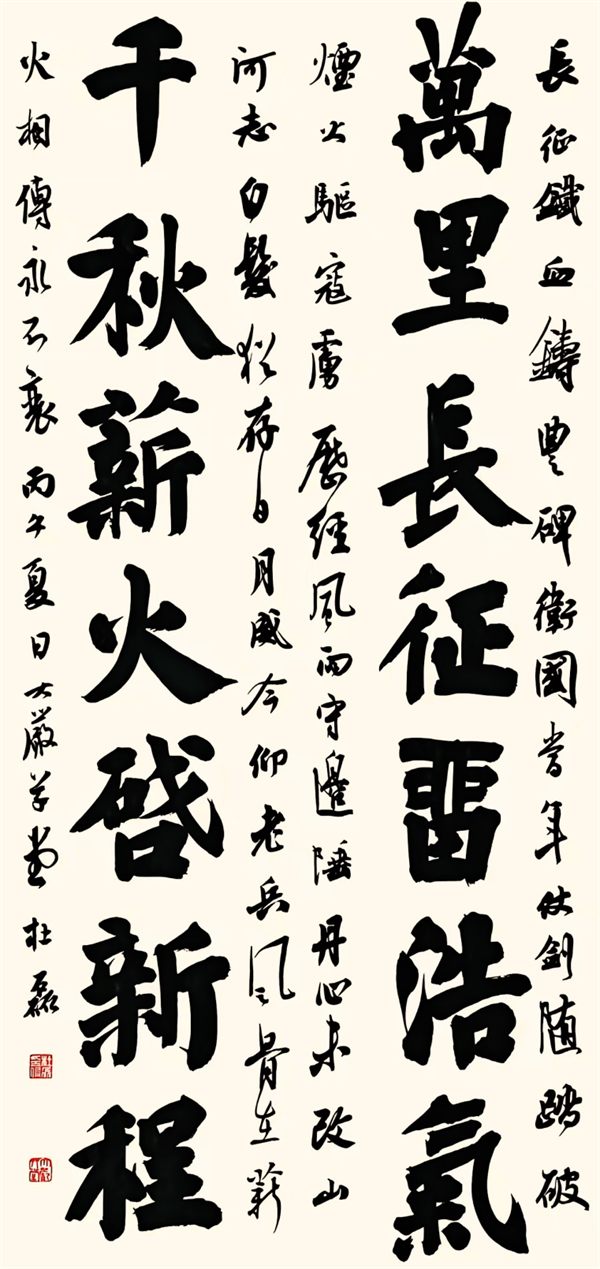 長征鐵血鑄豐碑衛國當年仗劍隨踏破
萬里長征畱浩氣
煙火驅寇虜歷經風雨守邊陲丹心未改山
河志白髮猶存日月威今仰老兵風骨在薪
千秋薪火啓新程
火相傳永不衰丙午夏日大嚴草堂杜磊